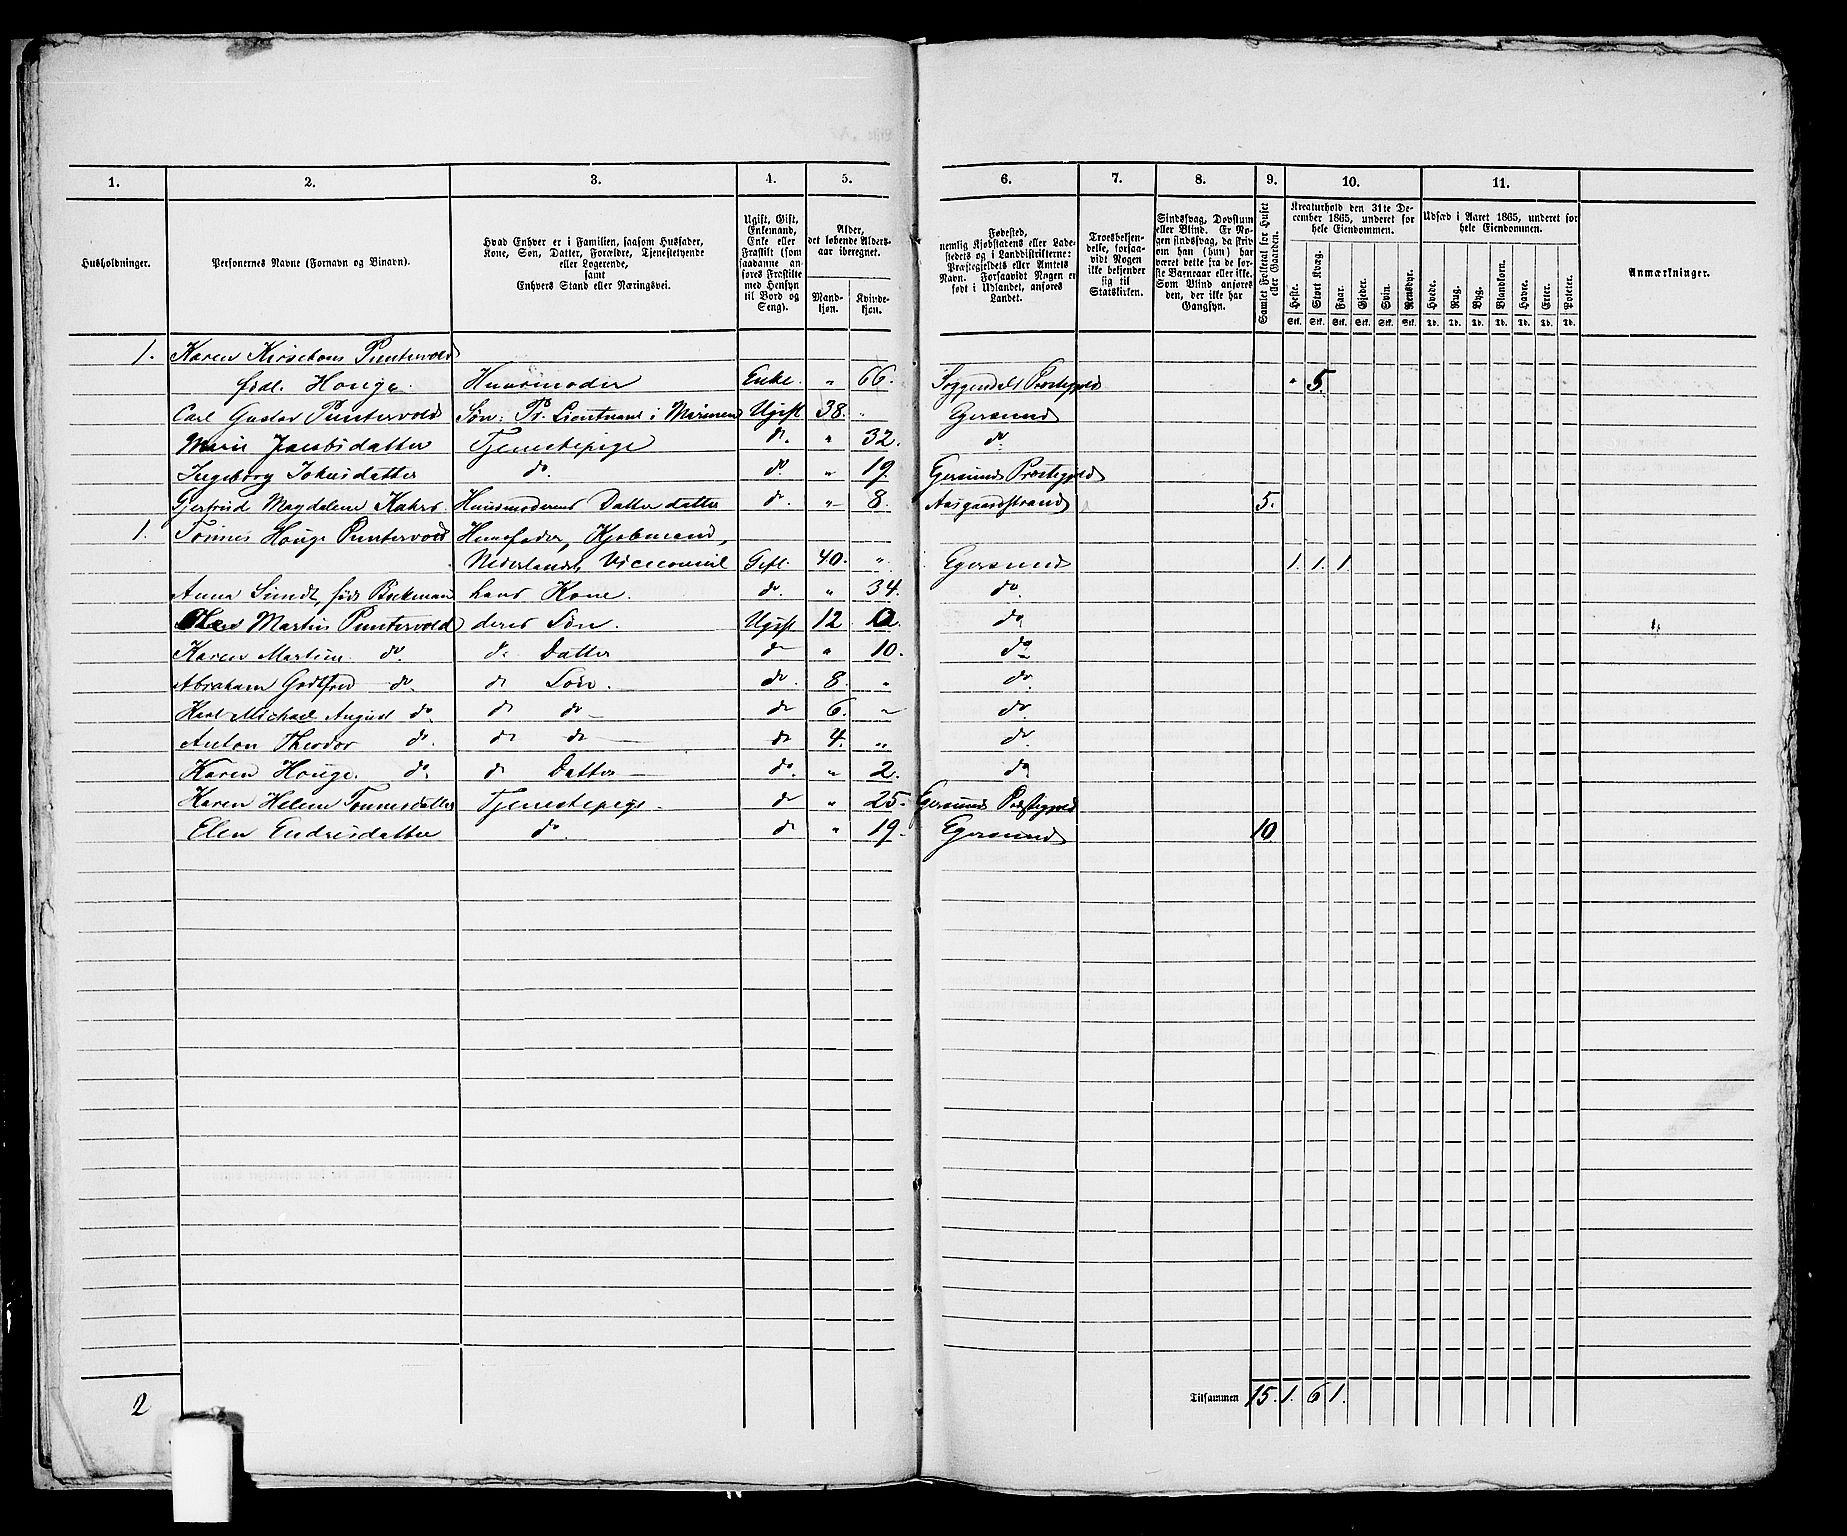 1. 2. 3. 4. 5. 6. 7. 8. 9. 10. 11.
Husholdninger.
Personernes Navne (Fornavn og Binavn).
Hvad Enhver er i Familien, saasom Husfader,
Kone, Søn, Datter, Forældre, Tjenestetyende
eller Logerende,
samt
Enhvers Stand eller Næringsvei.
Ugift, Gift,
Enkemand,
Enke eller
Fraskilt (som
saadanne an-
føres Fraskilte
med Hensyn
til Bord og
Seng).
Alder,
det løbende Alders-
aar iberegnet.
Mand-
kjøn.
Kvinde-
kjøn.
Fødested,
nemlig Kjøbstadens eller Lade-
stedets og i Landdistrikterne:
Præstegjeldets eller Amtets
Navn. Forsaavidt Nogen er
født i Udlandet, anføres
Landet.
Troesbekjen-
delse, forsaa-
vidt Nogen
ikke bekjender
sig til
Statskirken.
Sindssvag, Døvstum
eller Blind. Er No-
gen sindssvag, da skriv
om han (hun) har
været dette fra de før-
ste Barneaar eller ikke.
Som Blind anføres
den, der ikke har
Gangsyn.
Samlet Folketal for Huset
eller Gaarden.
Kreaturhold den 31te De-
cember 1865, underet for
hele Eiendommen.
Heste. Stort Kvæg. Faar. Gjeder. Svin. Rensdyr.
Stk. Stk. Stk. Stk. Stk. Stk.
Udsæd i Aaret 1865, underet for
hele Eiendommen.
Hvede. Rug. Byg. Blandkorn. Havre. Erter. Poteter.
Td. Td. Td. Td. Td. Td. Td.
Anmærkninger.
1. Karen Puntervold
født Houge. Huusmoder Enke. " 66. Soggendals Præstegjeld " 5.
Carl Gustav Puntervold Søn: Pr. Lieutnant i Marinen Ugift 38. " Egersund
Marie Jacobsdatter Tjenestepige do. " 32. do.
Ingeborg do. do. " 19. Egersunds Præstegjeld
Gjertrud Magdalene Huusmoderens Datterdatter do. " 8. Aasgaardstrand 5.
1. Tønnes Houge Puntervold Huusfader, Kjøbmand,
Nederlandsk Viceconsul Gift. 40. " Egersund 1. 1. 1
Anna Sundt, født hans Kone. do. " 34. do.
Martin Puntervold deres Søn. Ugift 12 do
Karen Martine do. do Datter do " 10. do
Abraham Godtfred do. do Søn. do. 8. " do.
Karl Michael August do. do do do 6. " do.
Anton Theodor do. do do do 4. " do.
Karen Houge. do. do Datter do. " 2. do
Karen Helene Tønnesdatter Tjenestepige. do " 25. Egersunds Præstegjeld
Elen Endresdatter do. do " 19. Egersund 10.
2
Tilsammen 15. 1. 6 1.